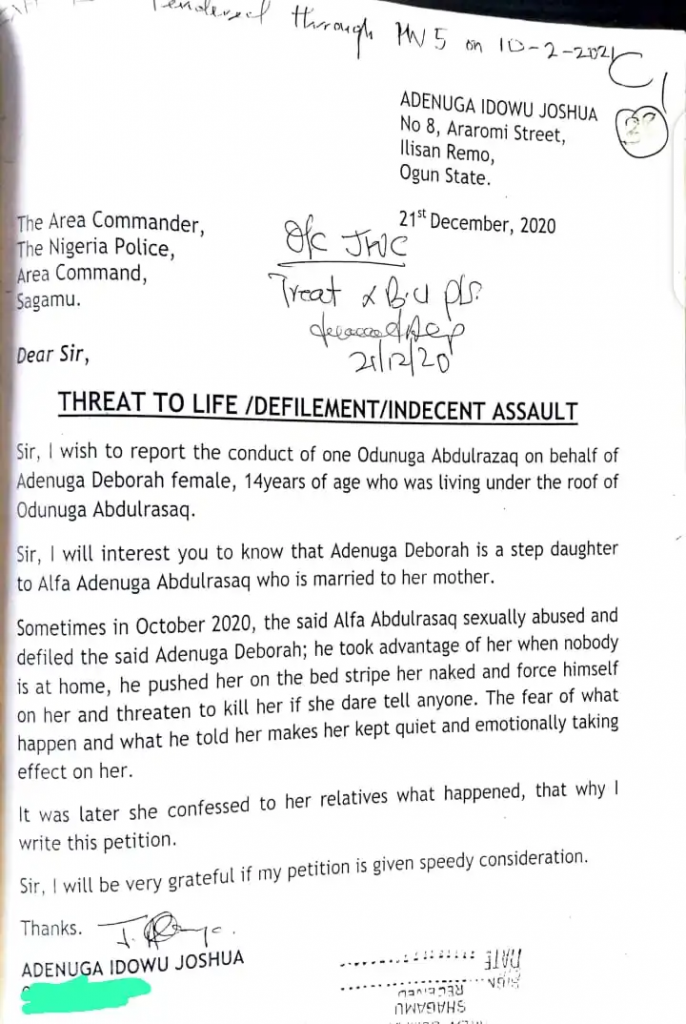 Tendered through PW5 on 10-2-2021
C1
ADENUGA IDOWU JOSHUA
No 8, Araromi Street,
Ilisan Remo,
Ogun State.
21st December, 2020
The Area Commander,
The Nigeria Police,
Area Command,
Sagamu.
O/c JWC
Treat & B.U pls.
21/12/20
Dear Sir,
THREAT TO LIFE /DEFILEMENT/INDECENT ASSAULT
Sir, I wish to report the conduct of one Odunuga Abdulrazaq on behalf of
Adenuga Deborah female, 14years of age who was living under the roof of
Odunuga Abdulrasaq.
Sir, I will interest you to know that Adenuga Deborah is a step daughter
to Alfa Adenuga Abdulrasaq who is married to her mother.
Sometimes in October 2020, the said Alfa Abdulrasaq sexually abused and
defiled the said Adenuga Deborah; he took advantage of her when nobody
is at home, he pushed her on the bed stripe her naked and force himself
on her and threaten to kill her if she dare tell anyone. The fear of what
happen and what he told her makes her kept quiet and emotionally taking
effect on her.
It was later she confessed to her relatives what happened, that why I
write this petition.
Sir, I will be very grateful if my petition is given speedy consideration.
Thanks.
ADENUGA IDOWU JOSHUA
DATE
SIGN
RECEIVED
SHAGAMU